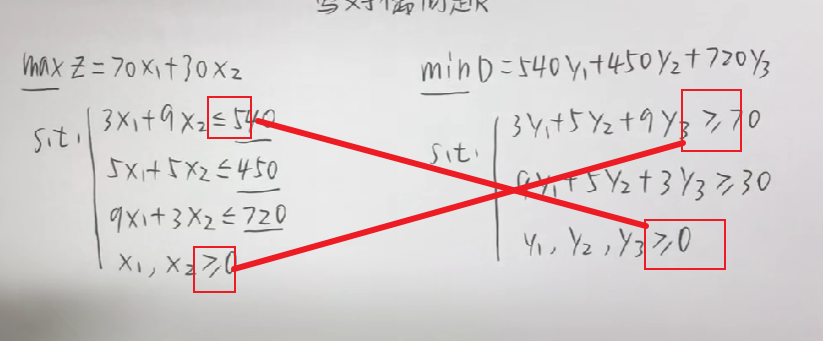 写对偶问题R
max Z = 70x₁+30x₂
s.t.
3x₁+9x₂ ≤ 540
5x₁+5x₂ ≤ 450
9x₁+3x₂ ≤ 720
x₁, x₂ ≥ 0
min D = 540y₁+450y₂+720y₃
s.t.
3y₁+5y₂+9y₃ ≥ 70
9y₁+5y₂+3y₃ ≥ 30
y₁, y₂, y₃ ≥ 0